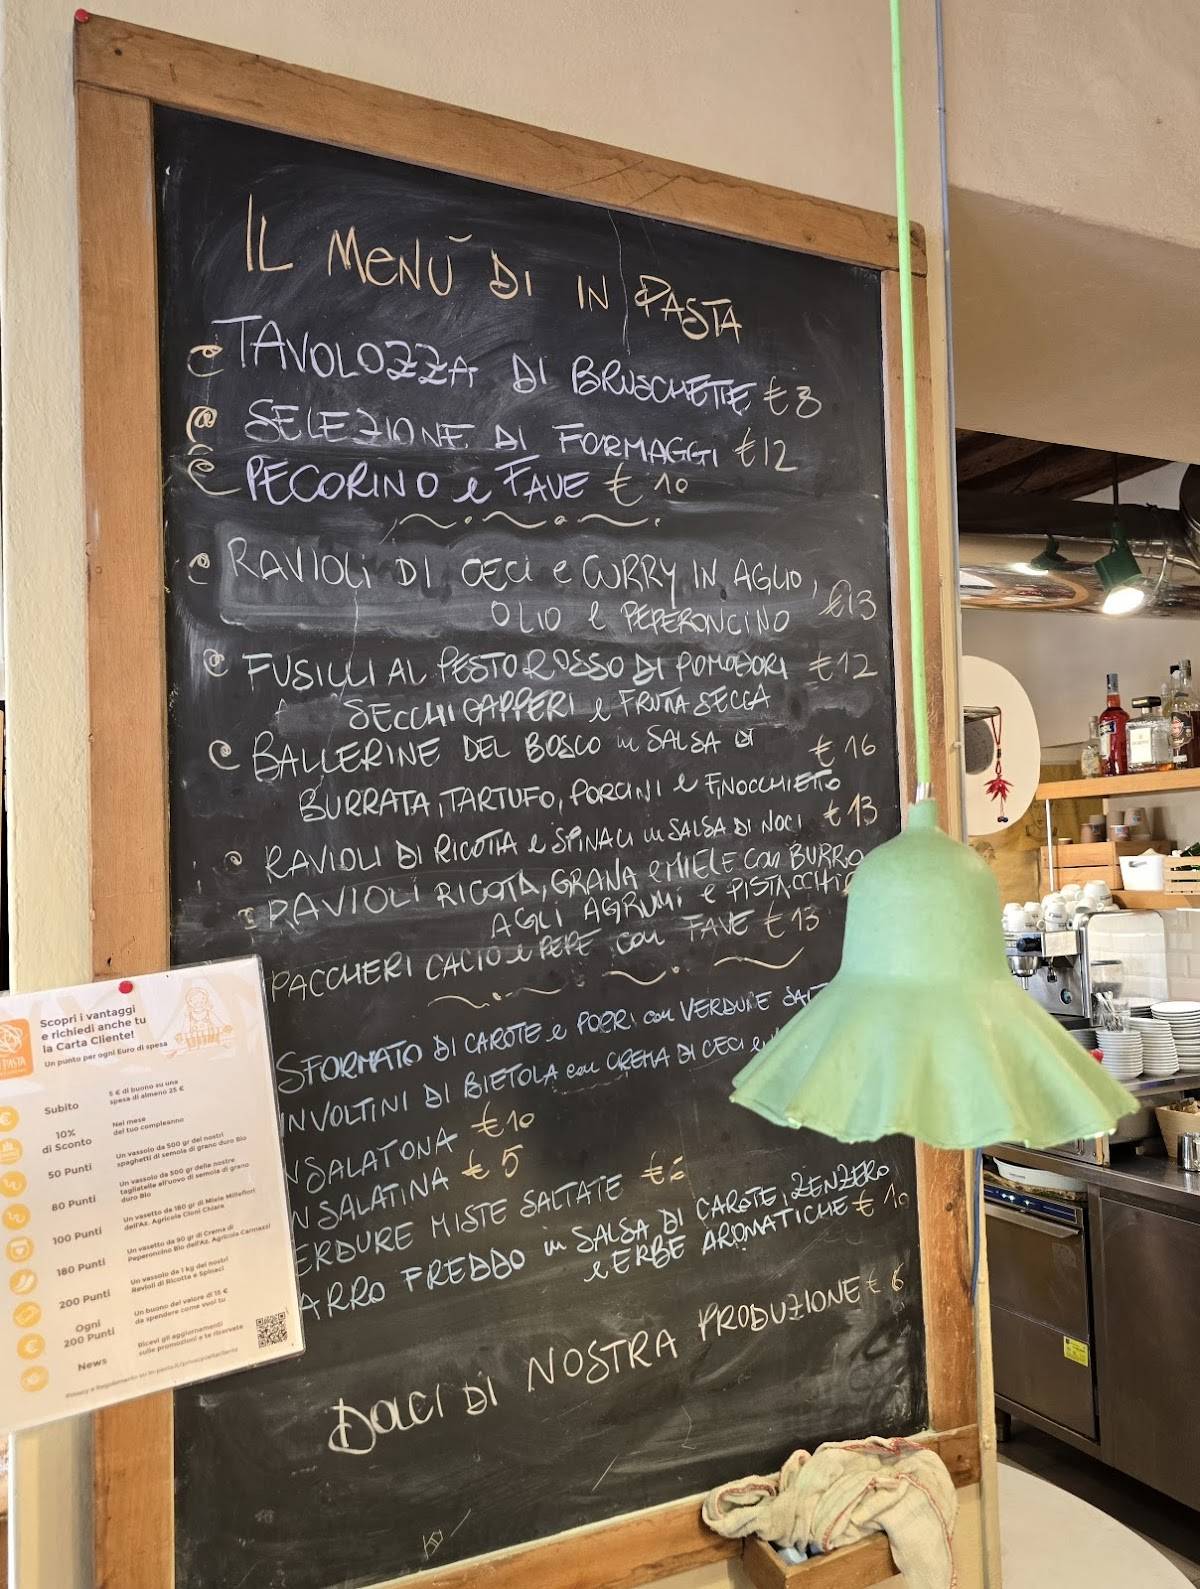 IL MENÙ DI IN PASTA
TAVOLOZZA DI BRUSCHETTE € 8
SELEZIONE DI FORMAGGI €12
PECORINO e FAVE € 10
RAVIOLI DI CECI e CURRY IN AGLIO,
OLIO e PEPERONCINO €13
FUSILLI AL PESTO ROSSO DI POMODORI €12
SECCHI CAPPERI e FRUTTA SECCA
BALLERINE DEL BOSCO in SALSA DI € 16
BURRATA, TARTUFO, PORCINI e FINOCCHIETTO
RAVIOLI DI RICOTTA e SPINACI in SALSA DI NOCI € 13
RAVIOLI RICOTTA, GRANA e MIELE con BURRO
AGLI AGRUMI e PISTACCHI
PACCHERI CACIO e PEPE con FAVE € 13
SFORMATO DI CAROTE e PORRI con VERDURE
INVOLTINI DI BIETOLA con CREMA DI CECI
NSALATONA €10
NSALATINA € 5
ERDURE MISTE SALTATE €
ARRO FREDDO in SALSA DI CAROTE, ZENZERO
e ERBE AROMATICHE € 10
DOLCI DI NOSTRA PRODUZIONE € 6
Scopri i vantaggi
e richiedi anche tu
la Carta Cliente!
Un punto per ogni Euro di spesa
PASTA
Subito
5 € di buono su una
spesa di almeno 25 €
10%
di Sconto
Nel mese
del tuo compleanno
50 Punti
Un vassoio da 500 gr dei nostri
spaghetti di semola di grano duro Bio
80 Punti
Un vassoio da 500 gr delle nostre
tagliatelle all'uovo di semola di grano
duro Bio
100 Punti
Un vasetto da 180 gr di Miele Millefiori
dell'Az. Agricola Cioni Chiara
180 Punti
Un vasetto da 90 gr di Crema di
Peperoncino Bio dell'Az. Agricola Carmazzi
200 Punti
Un vassoio da 1 kg dei nostri
Ravioli di Ricotta e Spinaci
Ogni
200 Punti
Un buono del valore di 15 €
da spendere come vuoi tu
News
Ricevi gli aggiornamenti
sulle promozioni e te riservate